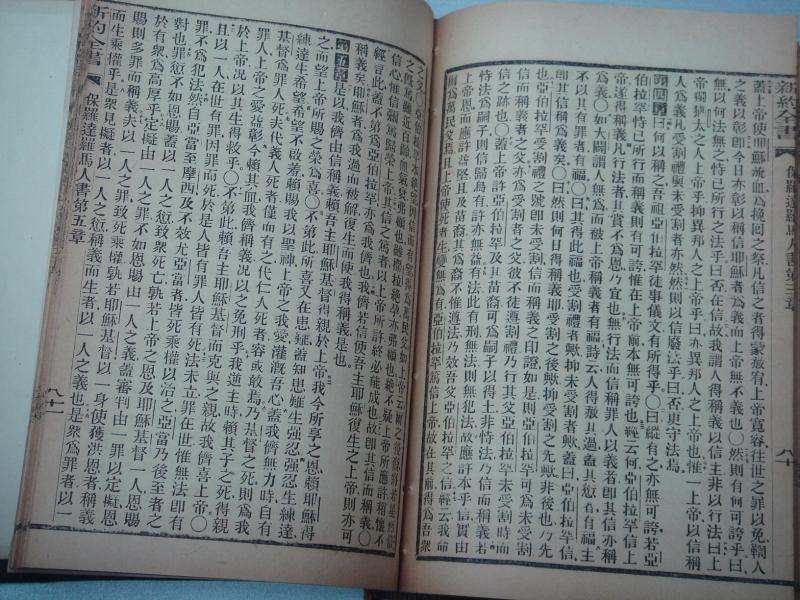 新約全書 保羅達羅馬人書第三章 八十
蓋上帝使耶穌流血爲挽回之祭凡信之者得蒙赦宥上帝寬容往世之罪以免鞫人
之義以彰卽今日亦彰以稱信耶穌者爲義而上帝無不義也〇然則有何可誇乎曰
無以何法無之恃己所行之法乎曰否在信故我謂人得稱義以信主非以行法曰上
帝獨猶太人之上帝乎抑異邦人之上帝乎曰亦異邦人之上帝也惟一上帝以信稱
人爲義凡受割禮與未受割者亦然然則以信廢法乎曰否更守法焉
第四章曰何以稱之吾祖亞伯拉罕徒事儀文有所得乎〇曰縱有之亦無可誇若亞
伯拉罕恃己所行而稱義則有可誇惟在上帝前本無可誇也經云何亞伯拉罕信上
帝遂得稱義凡行法者其賞不爲恩乃宜也無行法而信稱罪人以義者卽其信亦稱
爲義〇如大闢謂人無爲而被上帝稱義者有福詩云人得赦其過蓋其愆者有福主
不以其有罪者有福〇曰其得此福也受割禮者歟抑未受割者歟蓋曰亞伯拉罕信
卽其信稱義矣〇曰亞伯拉罕稱義卽受割之後歟抑未受割之先歟非後也乃先
也亞伯拉罕受割禮之號卽未受割信而稱義之印證如是亞伯拉罕可爲未受割
信而稱義者之父亦爲受割者之父彼不徒遵割禮乃行其父亞伯拉罕未受割時
信之跡也〇蓋上帝許亞伯拉罕及其苗裔可爲嗣子以得土非恃法乃信而稱義若
恃法爲嗣子則信歸烏有許亦無益有法如此有刑無法則無犯法故應許本乎信實由
上帝恩而應許益堅且及苗裔其爲裔不惟遵法乃效吾父亞伯拉罕之信經云我立
爾爲萬民父焉且上帝使死者生變無爲有亞伯拉罕篤信上帝故在其前得爲吾衆
之父矣〇亞伯拉罕本絕望而仍望爲萬民父如上帝云爾之後裔將若是然
信心惟信彌篤歸榮上帝其信之篤者以上帝所許終必能成也故卽其信而稱義〇
經言此蓋不第爲亞伯拉罕亦爲我儕也我儕若信使吾主耶穌復生之上帝則亦可
稱義矣卽耶穌者爲我過而被解復生而使我得稱義是也
第五章是以我儕由信稱義賴吾主耶穌基督得親於上帝我今所享之恩賴耶穌得
之而望上帝所賜之榮爲喜〇不第此所喜又在患難蓋知患難生強忍強忍生練達
練達生希望希望不啟羞賴賜我以聖神上帝之我愛灌漑吾心蓋我儕無力時自有
基督爲罪人死夫代義人死者僅而有之代仁人死者容或敢焉乃基督之死則爲
罪人上帝之愛益彰今賴其血我儕稱義況以之免刑乎我逆主時賴其子之死得親
於上帝況以其生得救乎〇不第此賴吾主耶穌基督而克與之親故我儕喜上帝〇
且以一人在世有罪因罪而死於是人皆有罪人皆有死法未立罪在世惟無法卽有
罪不爲犯法然自亞當至摩西及不效尤亞當者皆死乘權以治之亞當乃後至者之
對也罪愆不如恩賜蓋以一人之愆致衆死亡孰若上帝之恩及耶穌基督一人恩賜
於有衆爲高厚乎定擬由一人之罪不如恩賜由一人之義蓋審判由一罪以定擬恩
賜則多罪而稱義夫以一人之罪致死乘權孰若耶穌基督以一身使獲洪恩者稱義
而生乘權乎是衆見擬者以一人之愆稱義而生者以一人之義也是衆爲罪者以一
新約全書 保羅達羅馬人書第五章 八十一